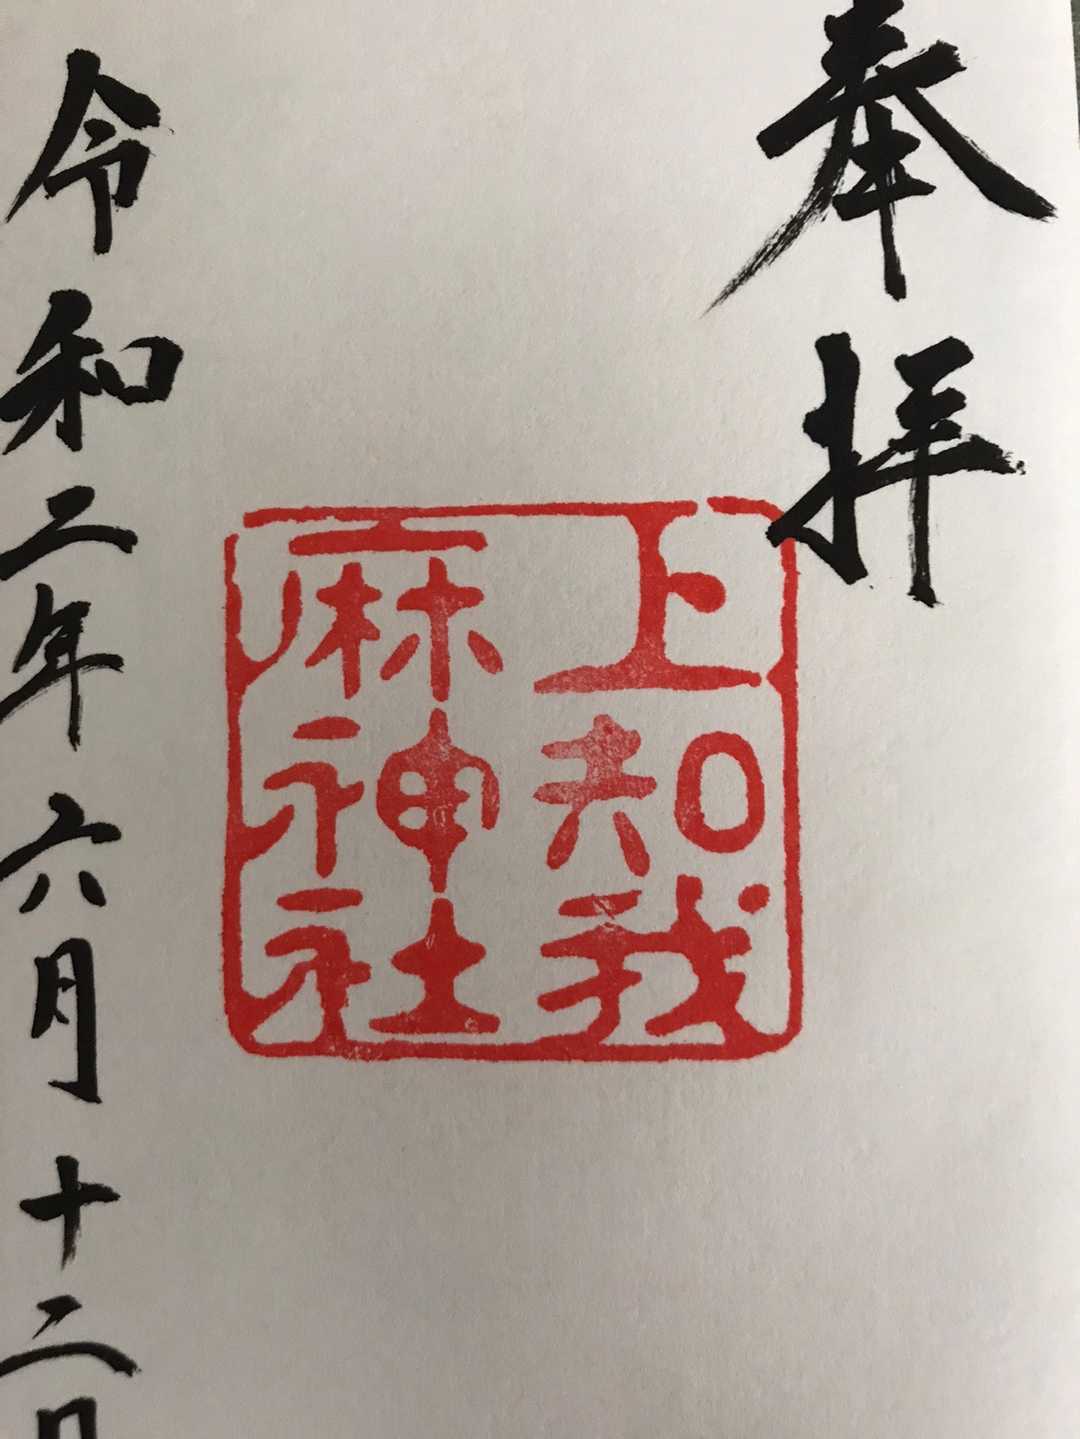 奉拝
上知我
麻神社
令和二年六月十二日